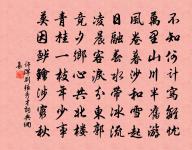 不知何計寫離憂
萬里山川半舊游
風卷暮沙和雪起
日融春水帶冰流
凌晨客淚分東郭
竟夕鄉心共北樓
青桂一枝年少事
莫因鱸鱠涉窮秋
許渾別張秀才詩詞典網
集